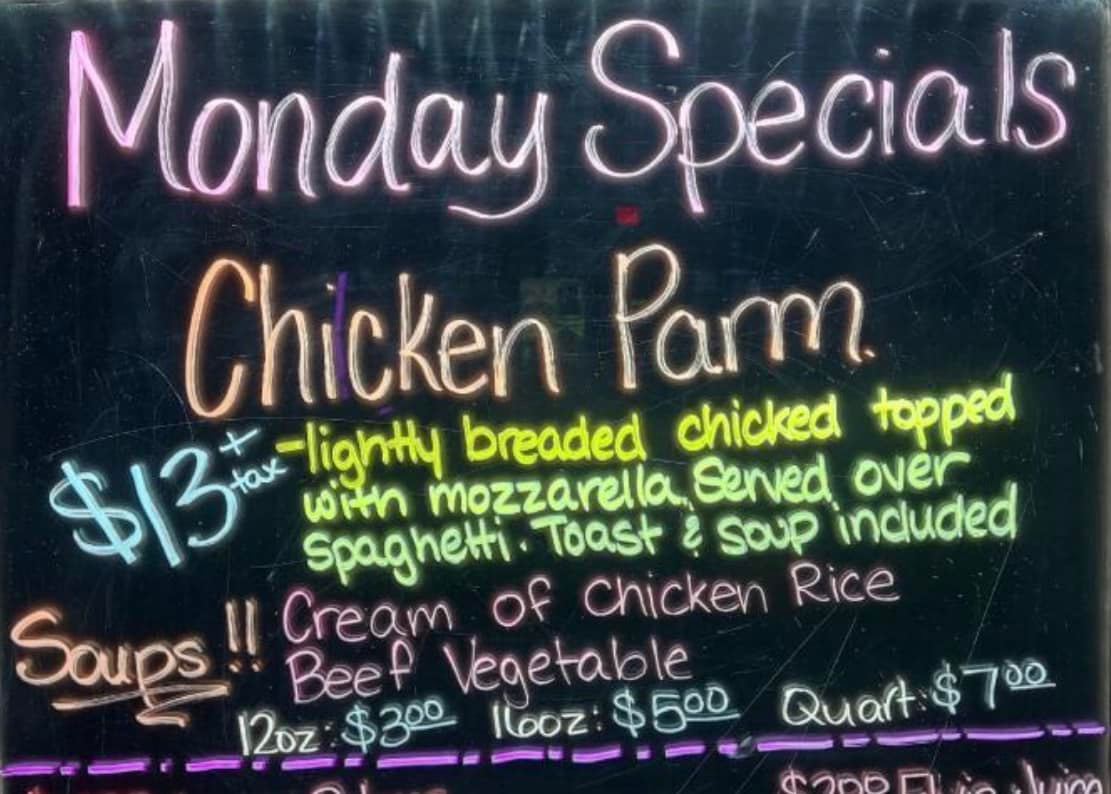 Monday Specials
Chicken Parm.
$13 + tax
-lightly breaded chicked topped
with mozzarella. Served over
spaghetti. Toast & soup included
Soups!!
Cream of Chicken Rice
Beef Vegetable
12oz: $300 16oz: $500 Quart: $700